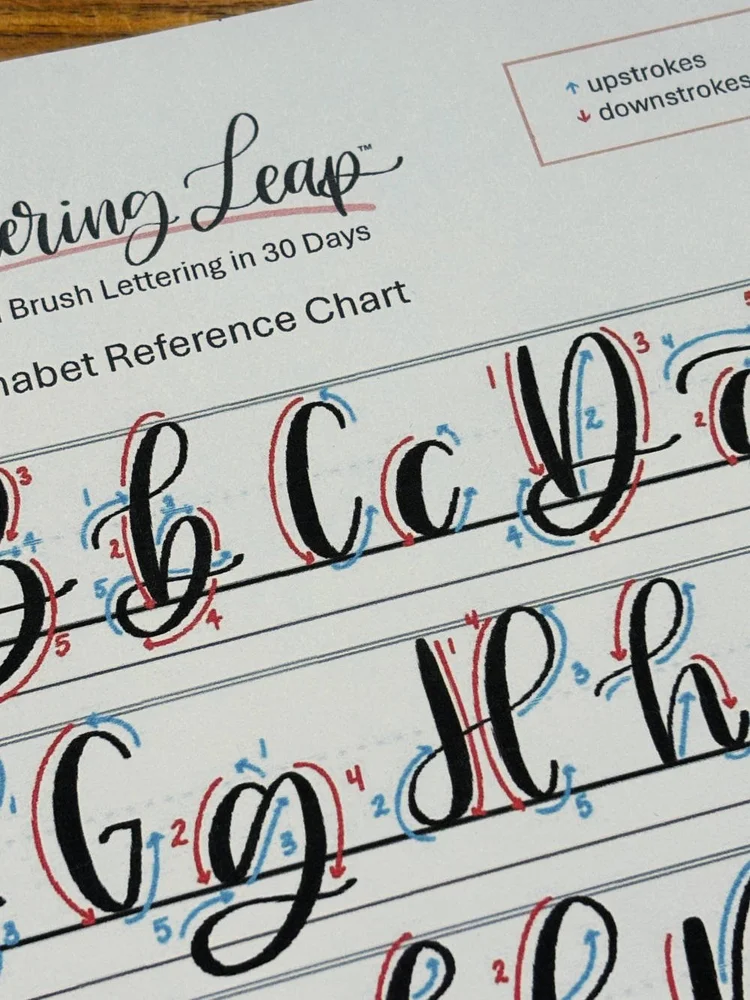 ↑ upstrokes
↓ downstrokes
ering Leap™
Brush Lettering in 30 Days
habet Reference Chart
3 1 2 3 4 5 b C c 1 2 3 4 D 4 2
5 4 5
1 G 1 2 3 4 5 g 1 2 3 4 5 H 3 h